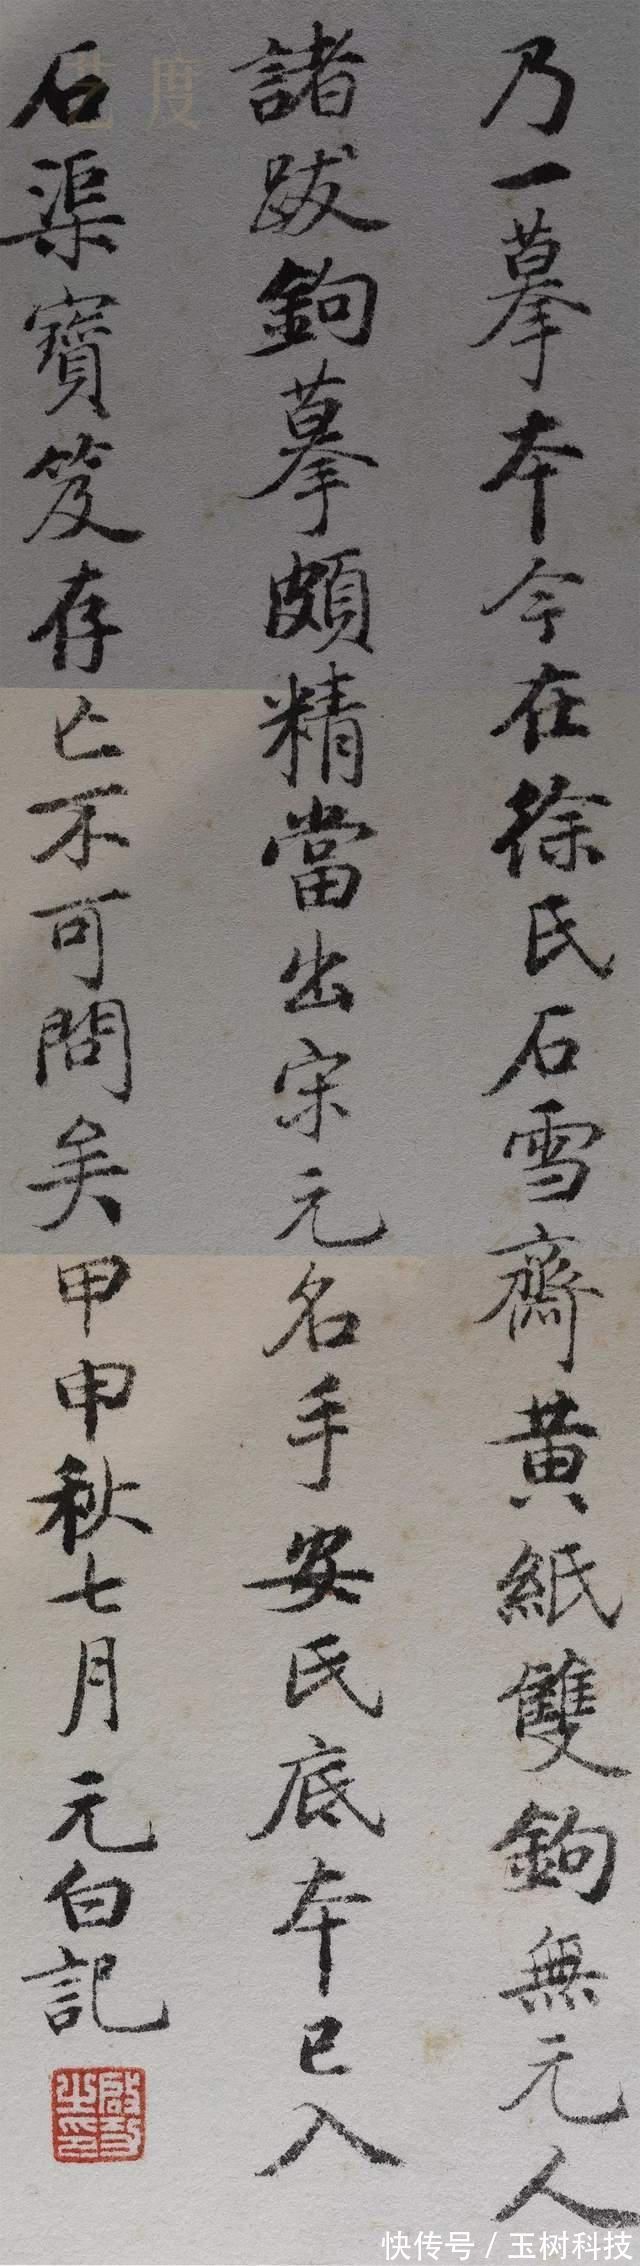 乃一摹本今在徐氏石雪齋黄紙雙鉤無元人
諸跋鉤摹頗精當出宋元名手安氏底本已入
石渠寶笈存亡不可問矣甲申秋七月元白記
啟功之印
艺度
快传号/玉树科技